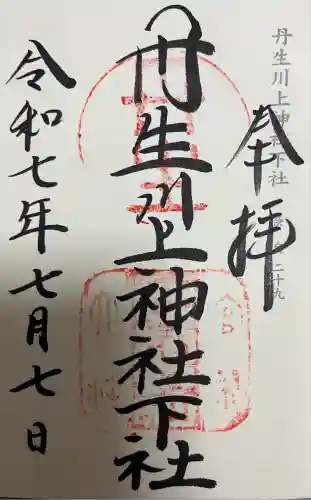 奉拝
丹生川上神社下社
令和七年七月七日
丹生川上神社下社